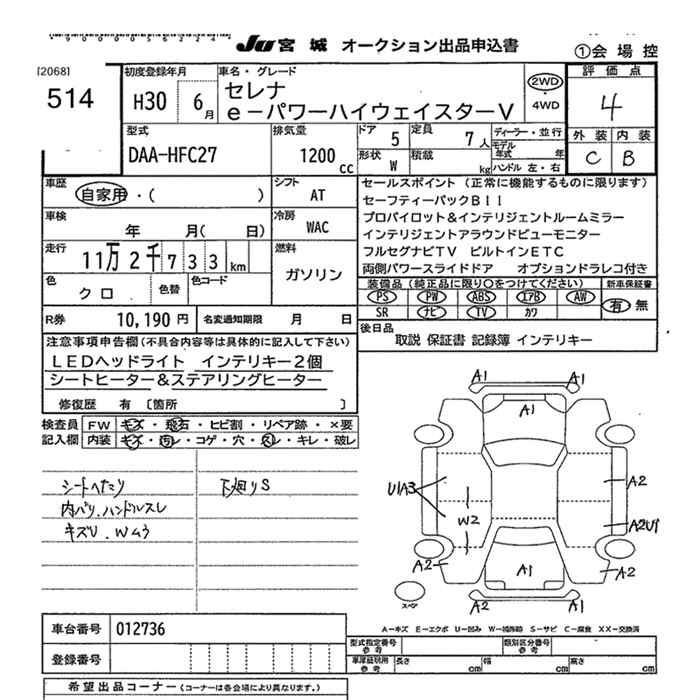 JU 宮城 オークション出品申込書
①会場控
[2068]
514
初度登録年月
H30 6月
車名・グレード
セレナ
e－パワーハイウェイスターV
2WD
・
4WD
評価点
4
外装 内装
C B
型式
DAA-HFC27
排気量
1200cc
ドア 5
定員 7人
形状 W
積載 kg
ディーラー・並行
モデル年式 年
ハンドル 左・右
車歴
自家用・( )
シフト AT
車検
年 月( 日)
冷房 WAC
走行
11万2千733km
燃料
ガソリン
色 クロ
色替
色コード
R券 10,190円
名変通知期限 月 日
セールスポイント (正常に機能するものに限ります)
セーフティーパックBII
プロパイロット&インテリジェントルームミラー
インテリジェントアラウンドビューモニター
フルセグナビTV ビルトインETC
両側パワースライドドア オプションドラレコ付き
装備品 (純正品に限り○をつけてください)
新車保証書
PS PW ABS エアB AW
SR ナビ TV カワ
有 無
後日品
取説 保証書 記録簿 インテリキー
注意事項申告欄 (不具合内容等は具体的に記入して下さい)
LEDヘッドライト インテリキー2個
シートヒーター&ステアリングヒーター
修復歴 有 〔箇所 〕
検査員記入欄
FW キズ・飛石・ヒビ割・リペア跡・×要
内装 キズ・汚レ・コゲ・穴・スレ・キレ・破レ
シートへたり
内バリ、ハンドルスレ
キズU、Wムラ
下廻りS
A1 A1
A1
U1A3
W2
A2
A2U1
A2
A2
A1
A2 A1
スペア
A－キズ E－エクボ U－凹み W－補修跡 S－サビ C－腐食 XX－交換済
車台番号 012736
登録番号
型式指定番号 参考
類別区分番号 参考
車庫証明用 参考
長さ cm 幅 cm 高さ cm
希望出品コーナー (コーナーは各会場により異なります。)